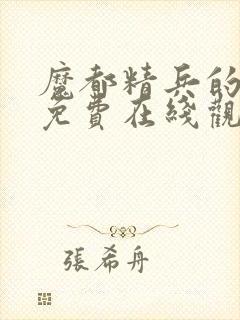 魔都精兵的
免費在綫觀
張希舟